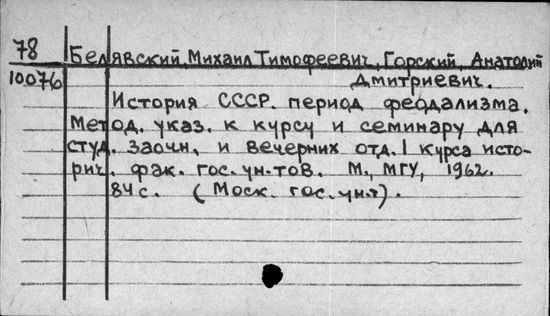 78 Белявский, Михаил Тимофеевич, Горский, Анатолий
10076 Дмитриевич.
История СССР. период феодализма.
Метод. указ. к курсу и семинару для
студ. заочн. и вечерних отд. I курса исто-
рич. фак. гос. ун-тов. М., МГУ, 1962.
84 с. (Моск. гос. ун-т).